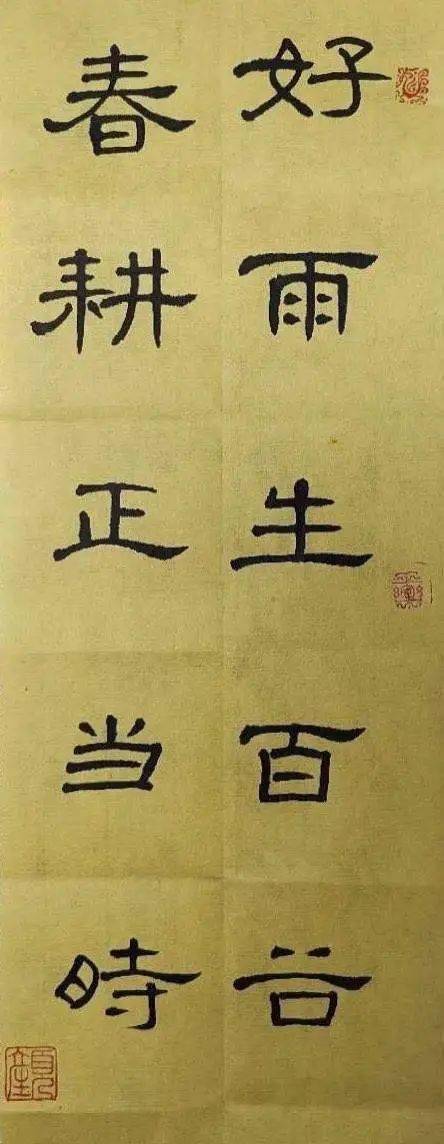 好雨生百谷
春耕正当时